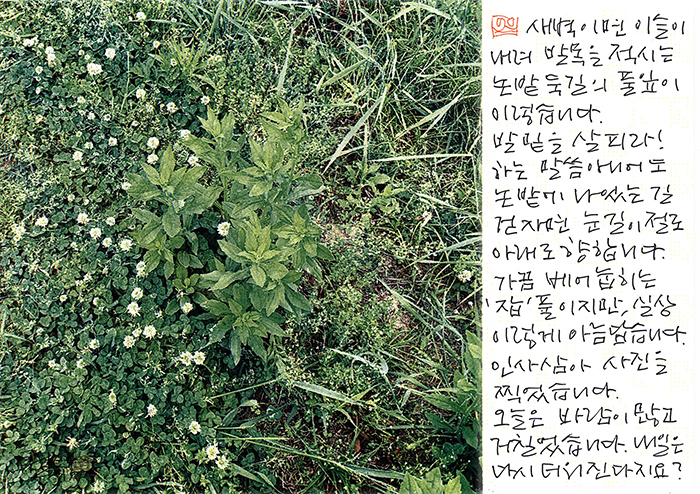 새벽이면 이슬이
내려 발목을 적시는
논밭 둑길의 풀잎이
이렇습니다.
발밑을 살피라!
하는 말씀 아니어도
논밭에 나있는 길
걷자면 눈길이 절로
아래로 향합니다.
가끔 베어 눕히는
'잡'풀이지만, 실상
이렇게 아름답습니다.
인사삼아 사진을
찍었습니다.
오늘은 바람이 많고
거칠었습니다. 내일은
다시 더워진다지요?